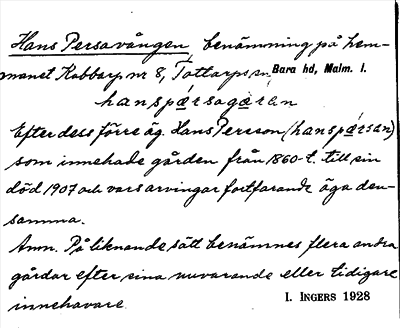 Hans Persavången, benämning på hem-
manet Kabbarp nr 8, Tottarps sn, Bara hd, Malm. l.
hanspæ̱rsagæ̱rən
Efter dess förre äg. Hans Persson (hanspæ̱rsən)
som innehade gården från 1860-t. till sin
död 1907 och vars arvingar fortfarande äga den-
samma.
Anm. På liknande sätt benämnes flera andra
gårdar efter sina nuvarande eller tidigare
innehavare.
I. INGERS 1928